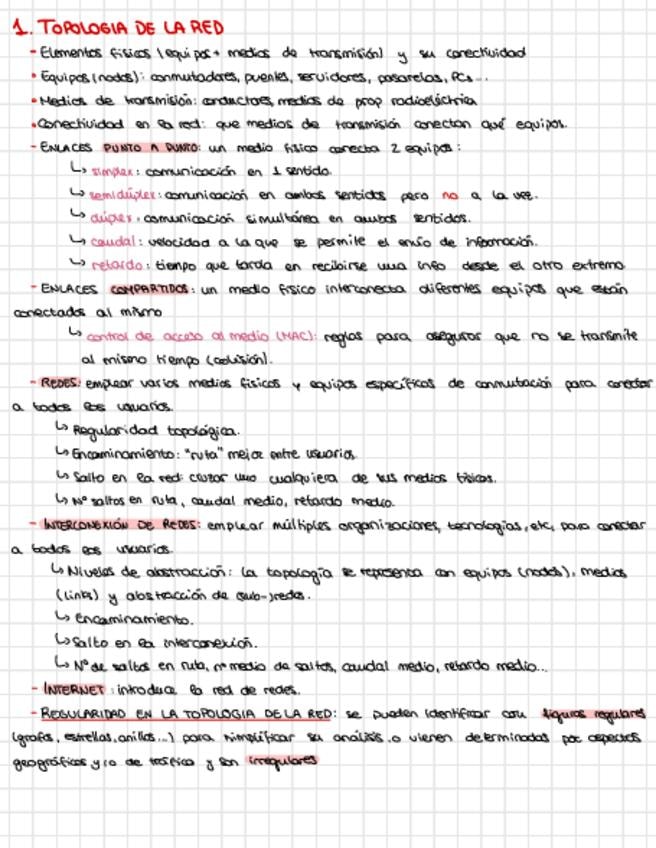 1. TOPOLOGIA DE LA RED
- Elementos físicos (equipos + medios de transmisión) y su conectividad
• Equipos (nodos): conmutadores, puentes, servidores, pasarelas, PCs...
• Medios de transmisión: conductores, medios de prop radioeléctrica
• Conectividad en la red: que medios de transmisión conectan qué equipos.
- ENLACES PUNTO A PUNTO: un medio físico conecta 2 equipos:
↳ simplex: comunicación en 1 sentido.
↳ semidúplex: comunicación en ambos sentidos pero no a la vez.
↳ dúplex: comunicación simultánea en ambos sentidos.
↳ caudal: velocidad a la que se permite el envío de información.
↳ retardo: tiempo que tarda en recibirse una info desde el otro extremo
- ENLACES COMPARTIDOS: un medio físico interconecta diferentes equipos que están
conectados al mismo
↳ control de acceso al medio (MAC): reglas para asegurar que no se transmite
al mismo tiempo (colisión).
- REDES: emplear varios medios físicos y equipos específicos de conmutación para conectar
a todos los usuarios.
↳ Regularidad topológica.
↳ Encaminamiento: "ruta" mejor entre usuarios
↳ Salto en la red: cruzar uno cualquiera de sus medios físicos.
↳ Nº saltos en ruta, caudal medio, retardo medio.
- INTERCONEXIÓN DE REDES: emplear múltiples organizaciones, tecnologías, etc, para conectar
a todos los usuarios.
↳ Niveles de abstracción: la topología se representa con equipos (nodos), medios
(links) y abstracción de (sub-)redes.
↳ Encaminamiento.
↳ Salto en la interconexión.
↳ Nº de saltos en ruta, nº medio de saltos, caudal medio, retardo medio...
- INTERNET: introduce la red de redes.
- REGULARIDAD EN LA TOPOLOGIA DE LA RED: se pueden identificar con figuras regulares
(grafos, estrellas, anillos...) para simplificar su análisis o vienen determinadas por aspectos
geográficos y/o de tráfico y son irregulares